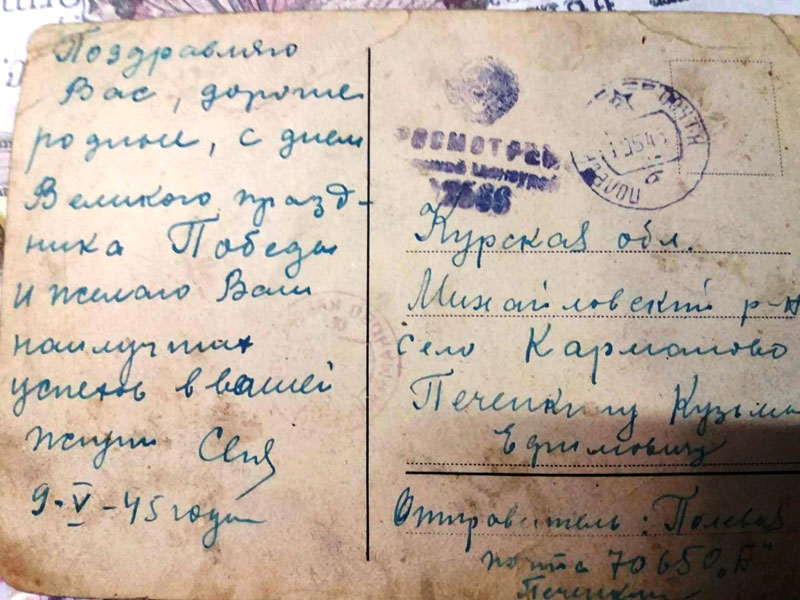 Поздравляю
Вас, дорогие
родные, с днем
Великого празд-
ника Победы
и желаю Вам
наилучших
успехов в вашей
жизни Сеня
9-V-45 года
ПРОСМОТРЕНО
Военной Цензурой
ПОЧТА
ПОЛЕВ
Курская обл.
Михайловский р-н
село Карманово
Печенкину Кузьме
Ефимовичу
Отправитель: Полевая
почта 70650 „Б"
Печенкин